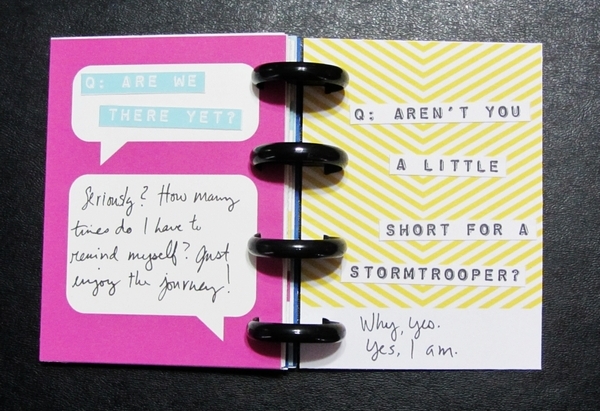 Q: ARE WE
THERE YET?
Seriously? How many
times do I have to
remind myself? Just
enjoy the journey!
Q: AREN'T YOU
A LITTLE
SHORT FOR A
STORMTROOPER?
Why, yes.
Yes, I am.